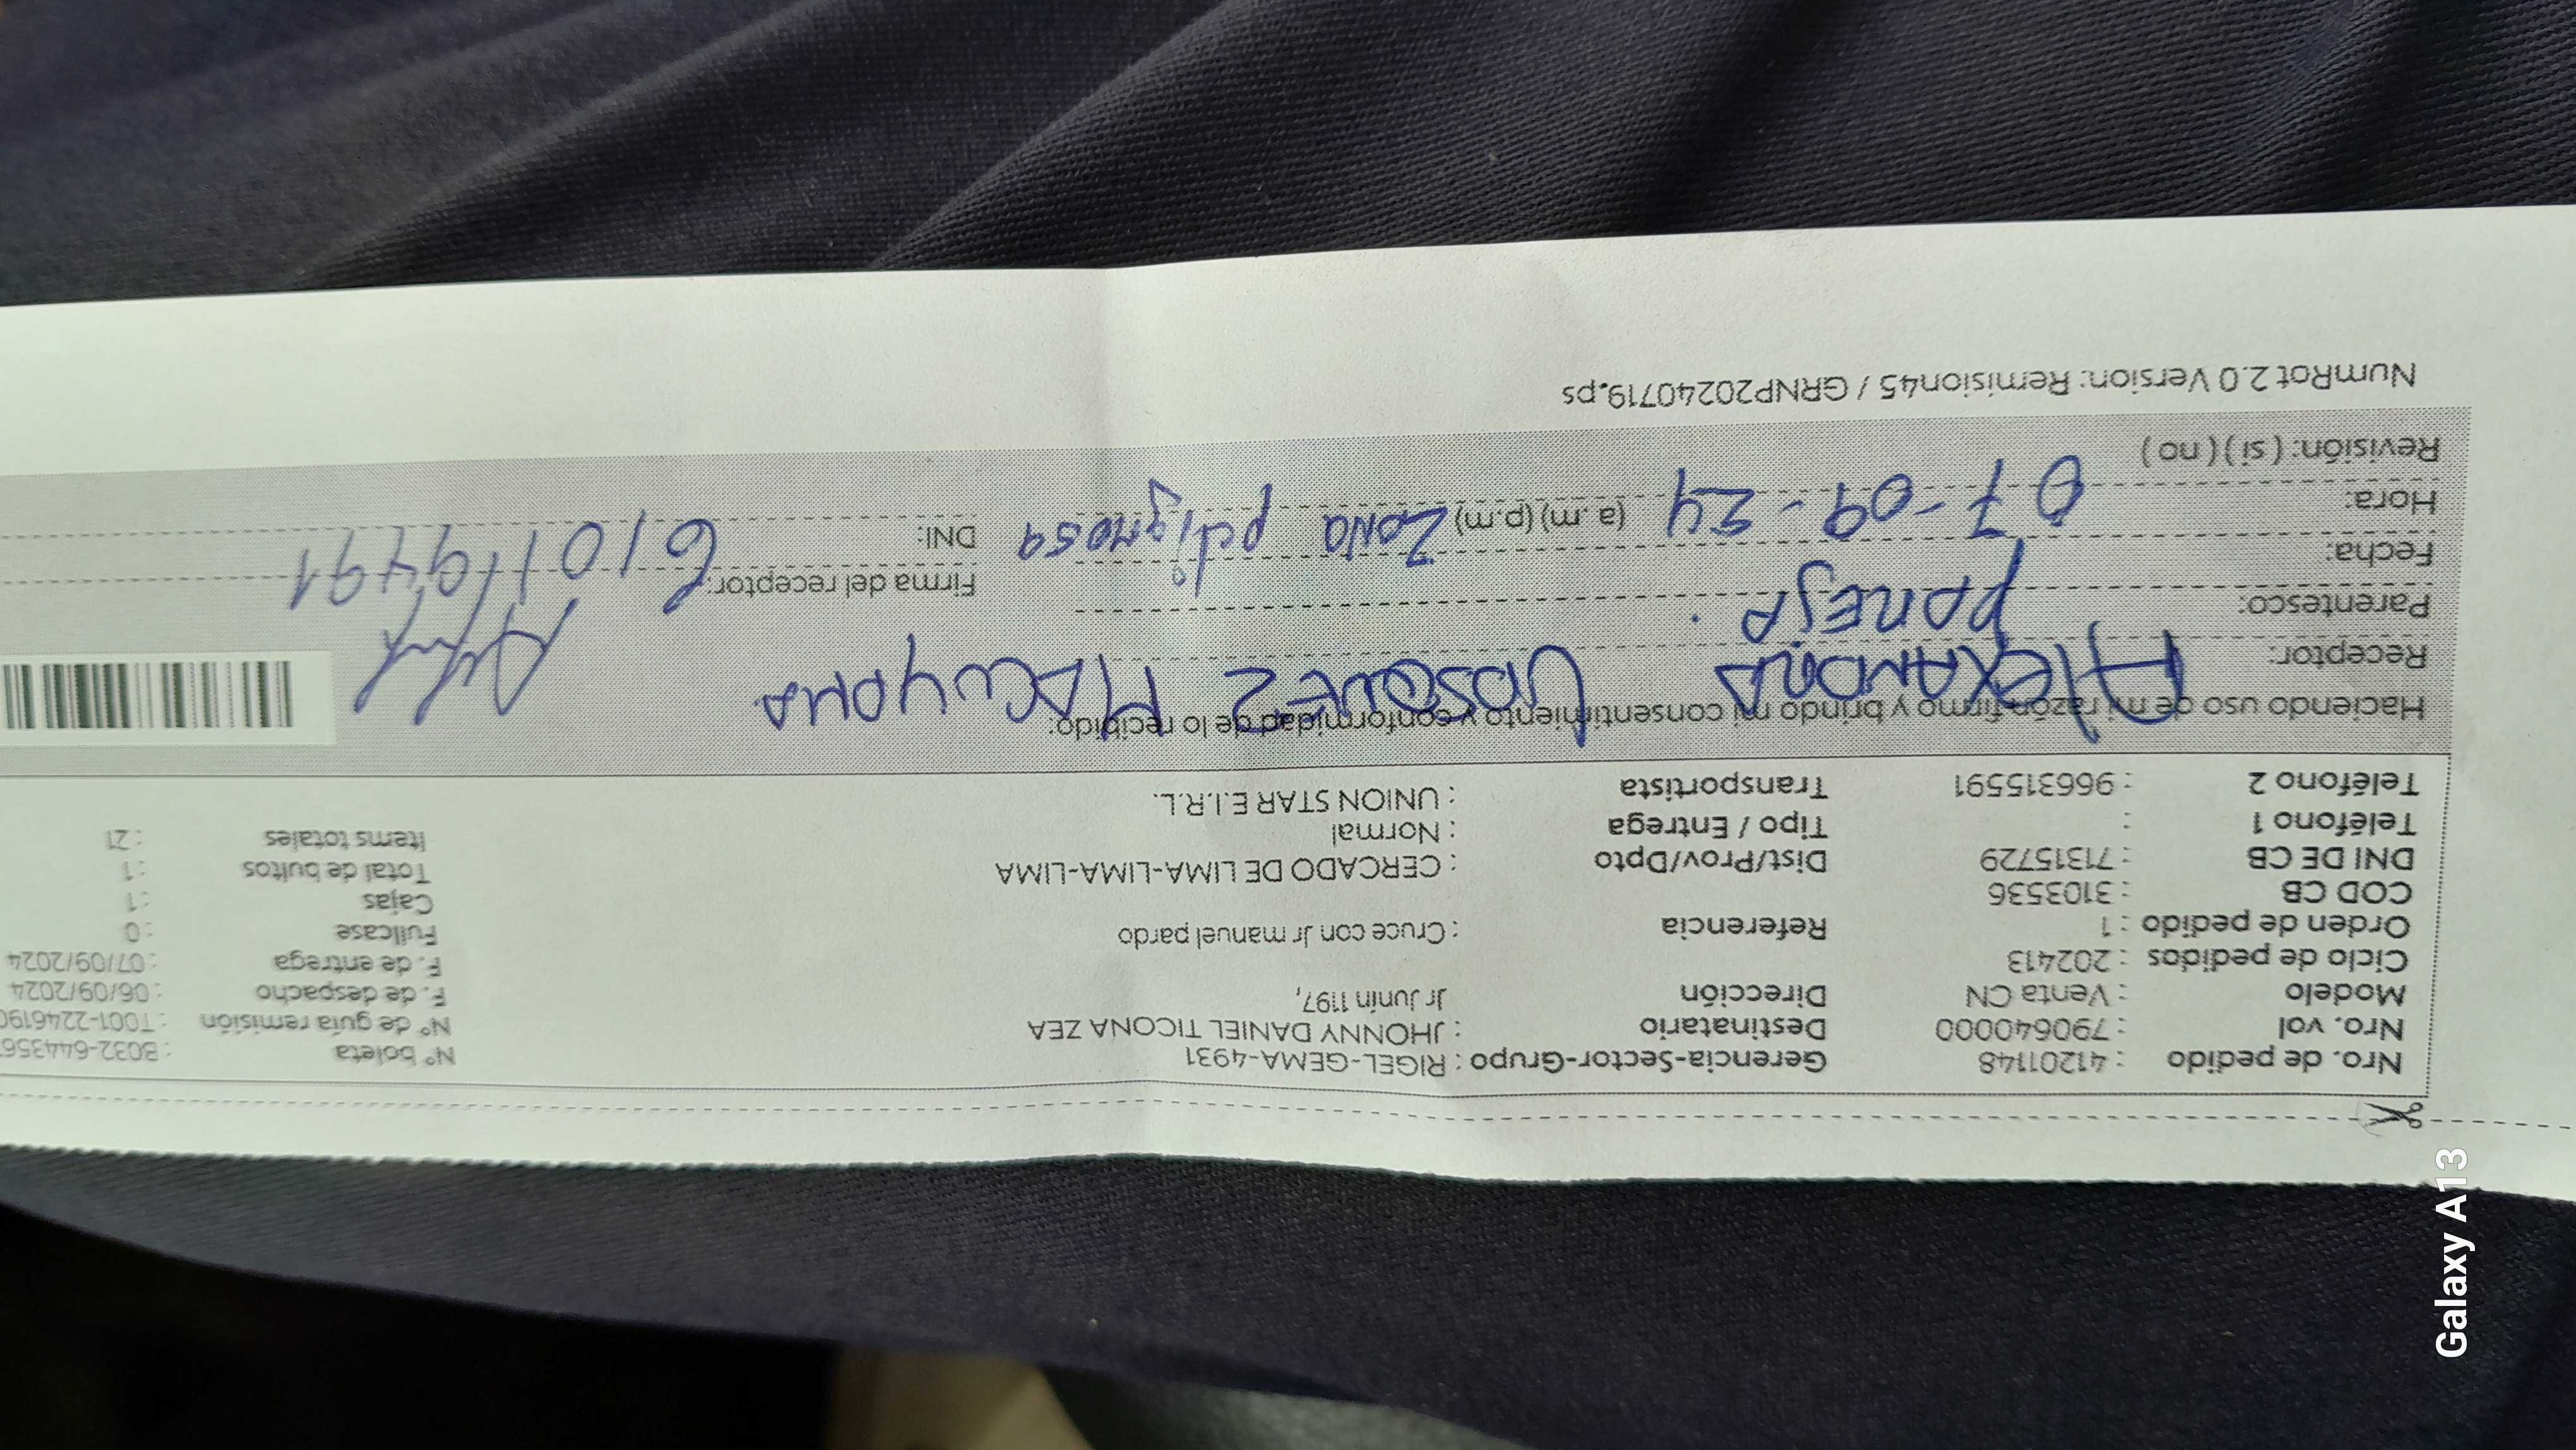 Nro. de pedido : 41201148 Gerencia-Sector-Grupo : RIGEL-GEMA-4931 N° boleta : B032-6443567
Nro. vol : 790640000 Destinatario : JHONNY DANIEL TICONA ZEA N° de guía remisión : T001-2246190
Modelo : Venta CN Dirección Jr Junín 1197, F. de despacho : 06/09/2024
Ciclo de pedidos : 202413 F. de entrega : 07/09/2024
Orden de pedido : 1 Referencia : Cruce con Jr manuel pardo Fullcase : 0
COD CB : 3103536 Cajas : 1
DNI DE CB : 71315729 Dist/Prov/Dpto : CERCADO DE LIMA-LIMA-LIMA Total de bultos : 1
Teléfono 1 : Tipo / Entrega : Normal Items totales : 21
Teléfono 2 : 966315591 Transportista : UNION STAR E.I.R.L.
Haciendo uso de mi razón firmo y brindo mi consentimiento y conformidad de lo recibido:
Receptor: Alexandra
Parentesco: pareja. Firma del receptor:
Fecha: 07-09-24 DNI:
Hora: (a.m) (p.m) Zona
Revisión: ( si ) ( no )
NumRot 2.0 Version: Remision45 / GRNP20240719.ps
Galaxy A13